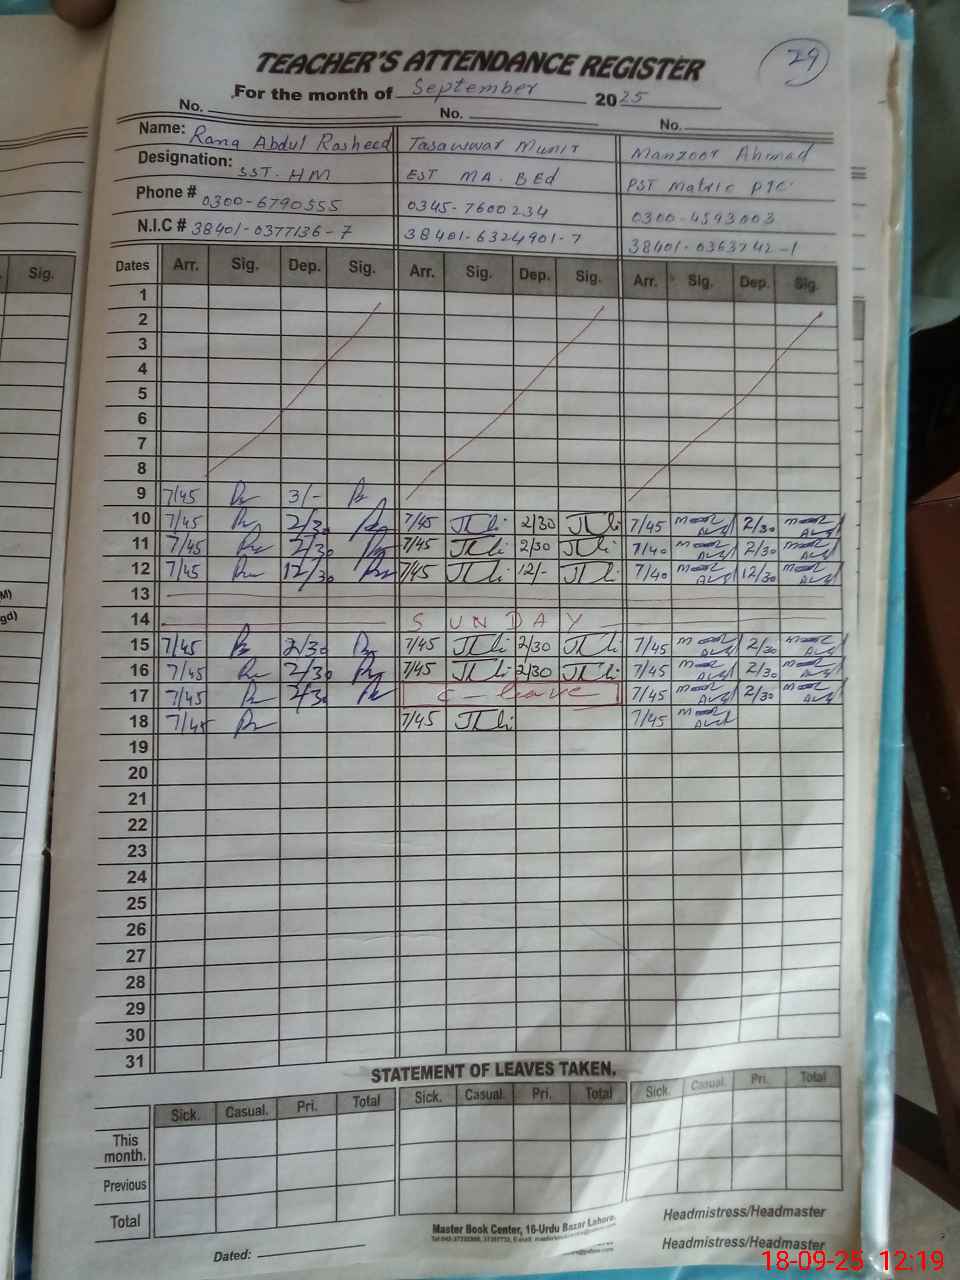 29
TEACHER'S ATTENDANCE REGISTER
For the month of September 2025
No. No. No.
Name: Rana Abdul Rasheed Tasawwar Munir Manzoor Ahmad
Designation: SST. HM EST MA. BEd PST Matric PTC
Phone # 0300-6790555 0345-7600234 0300-4593003
N.I.C # 38401-0377136-7 38401-6324901-7 38401-0363742-1
Sig. Dates Arr. Sig. Dep. Sig. Arr. Sig. Dep. Sig. Arr. Sig. Dep. Sig.
1
2
3
4
5
6
7
8
9 7/45 3/-
10 7/45 2/30 7/45 2/30 7/45 2/30
11 7/45 2/30 7/45 2/30 7/40 2/30
12 7/45 12/30 7/45 12/- 7/40 12/30
M) 13
14 SUNDAY
gd) 15 7/45 2/30 7/45 2/30 7/45 2/30
16 7/45 2/30 7/45 2/30 7/45 2/30
17 7/45 2/30 C-leave 7/45 2/30
18 7/45 7/45 7/45
19
20
21
22
23
24
25
26
27
28
29
30
31
STATEMENT OF LEAVES TAKEN.
Sick. Casual. Pri. Total Sick. Casual. Pri. Total Sick. Casual. Pri. Total
This month.
Previous
Total
Master Book Center, 16-Urdu Bazar Lahore.
Headmistress/Headmaster
Dated:
Headmistress/Headmaster
18-09-25 12:19